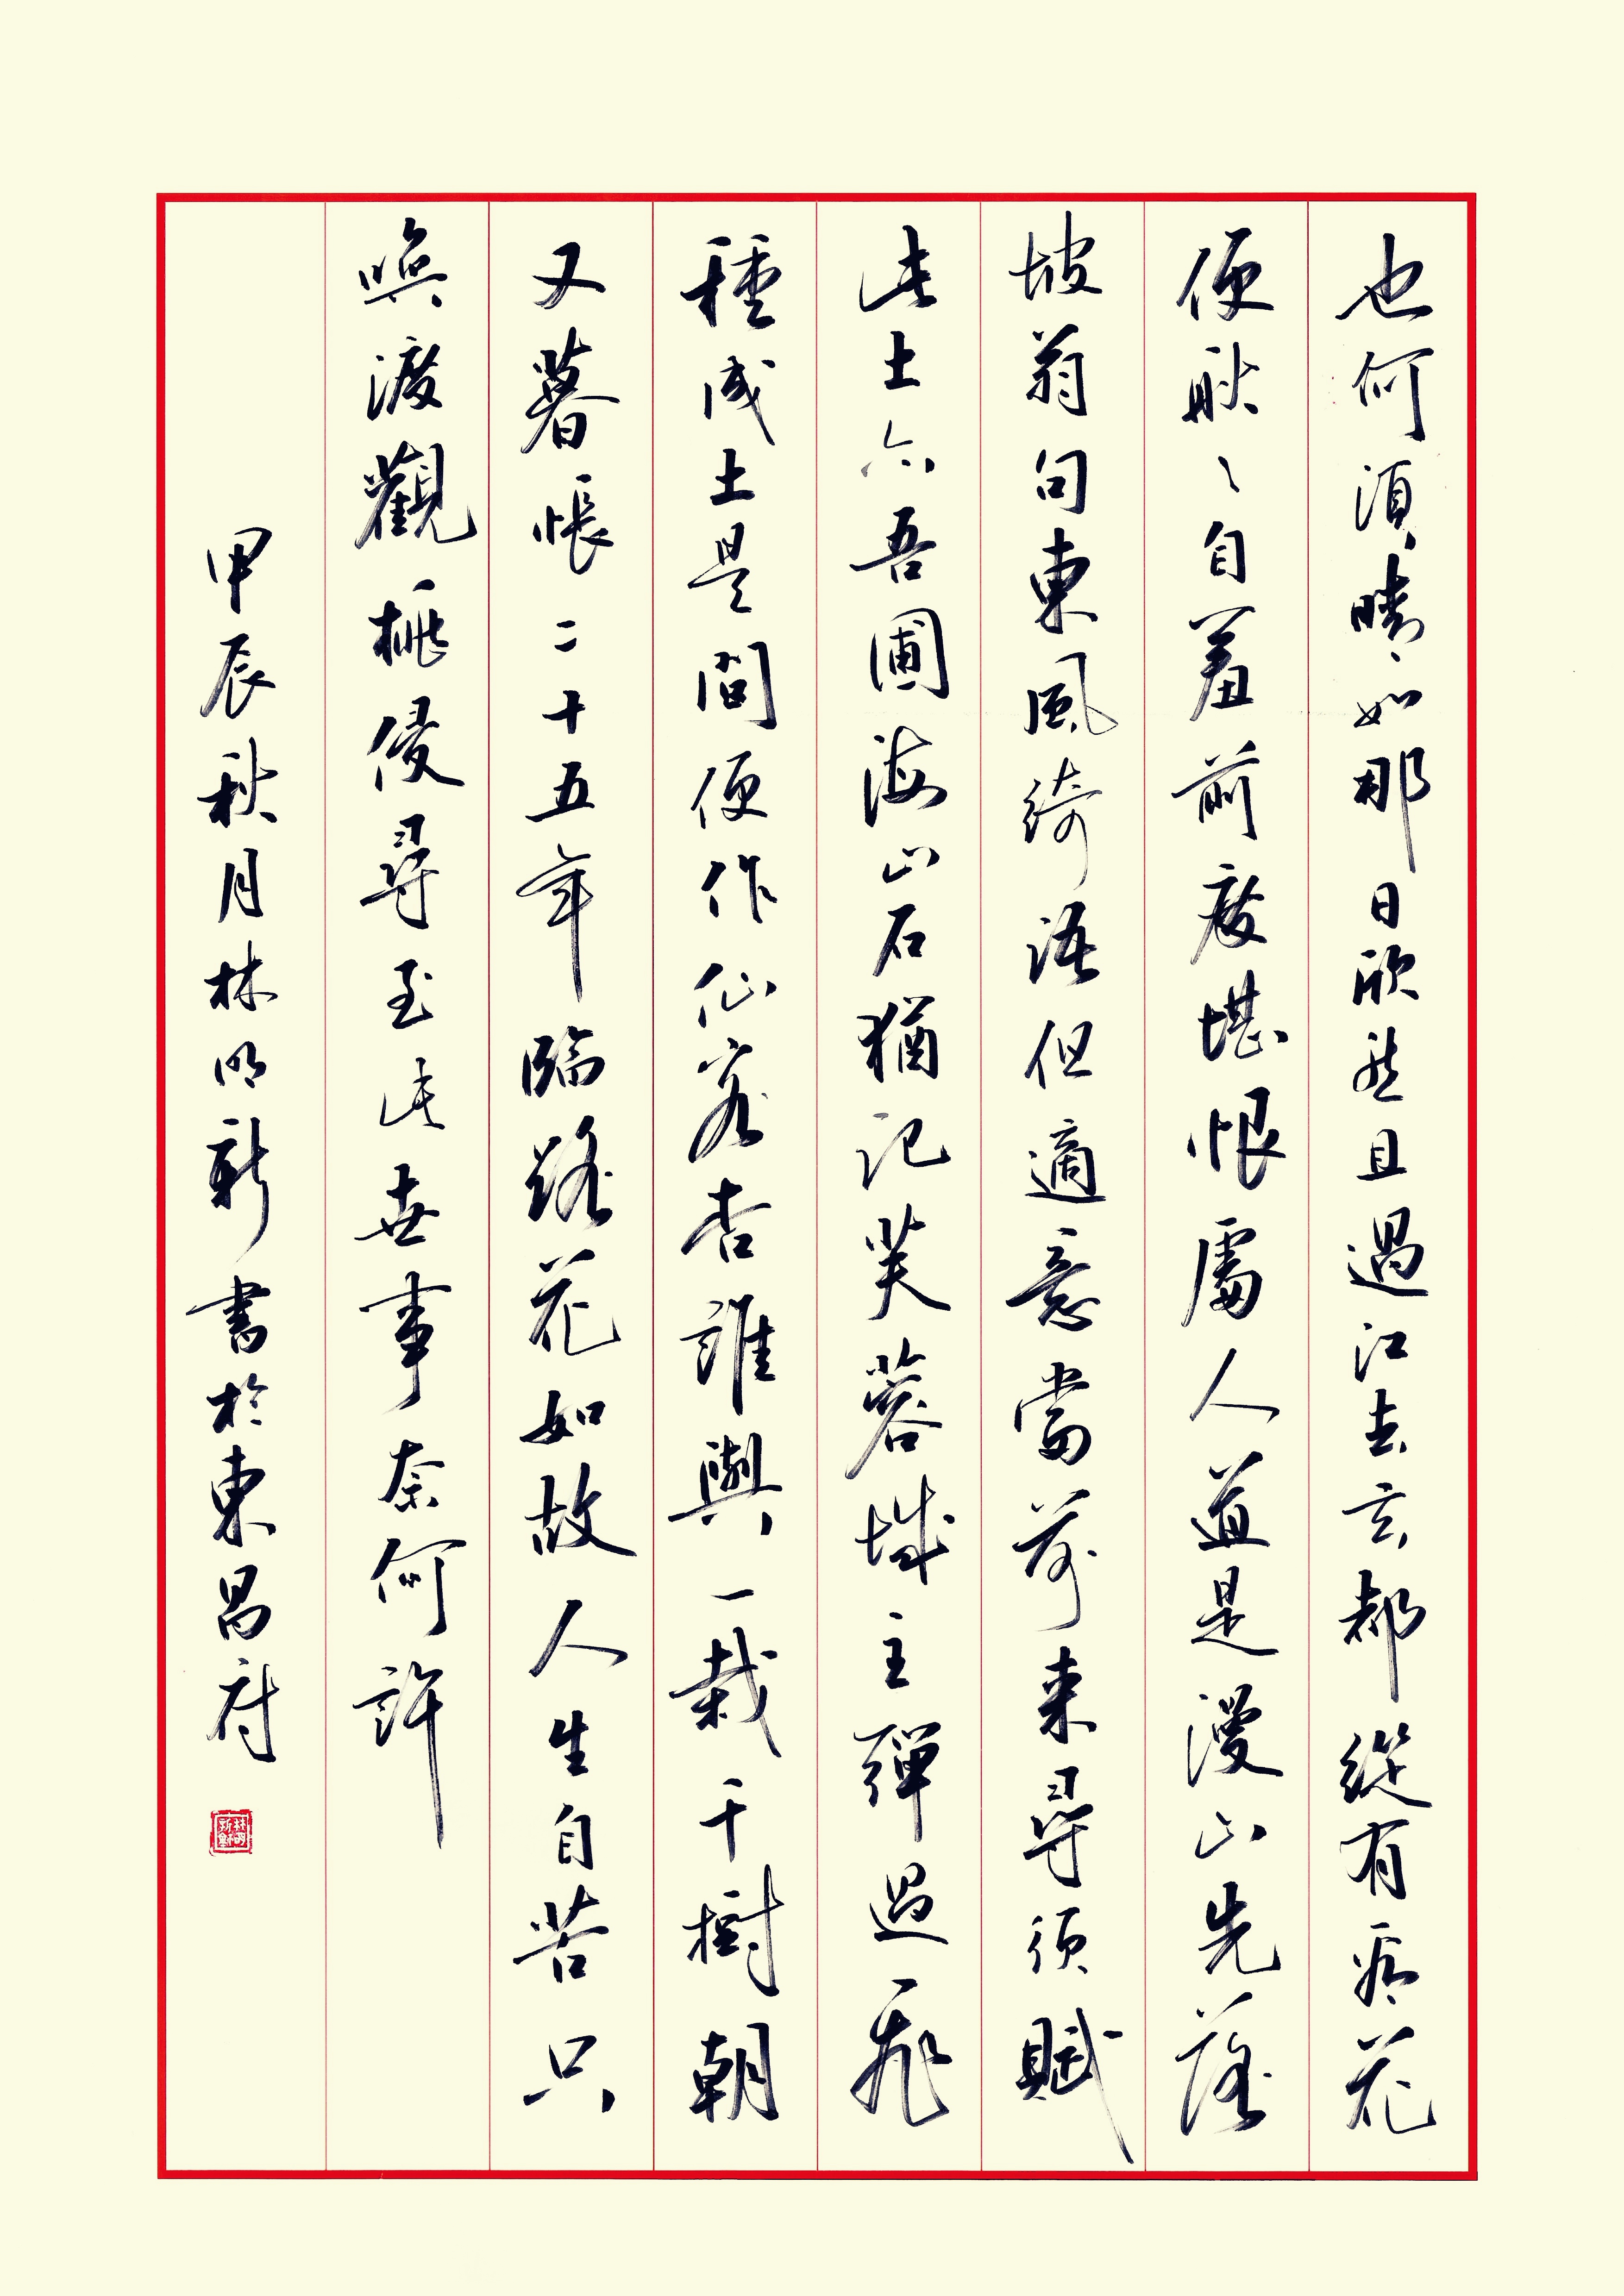 也何須晴如那日欣然且過江去玄都縱有看花
便耿〻自羞前度堪恨處人道是漫山先落
坡翁句東風綺語但適意當前來尋須賦
此土亦吾圃海山石猶記芙蓉城主彈過飛
種成土是間便作仙客杏誰與一栽千樹朝
又暮悵二十五年臨路花如故人生自苦只
喚渡觀桃侵尋至此世事奈何許
甲辰秋月林明新書於東昌府